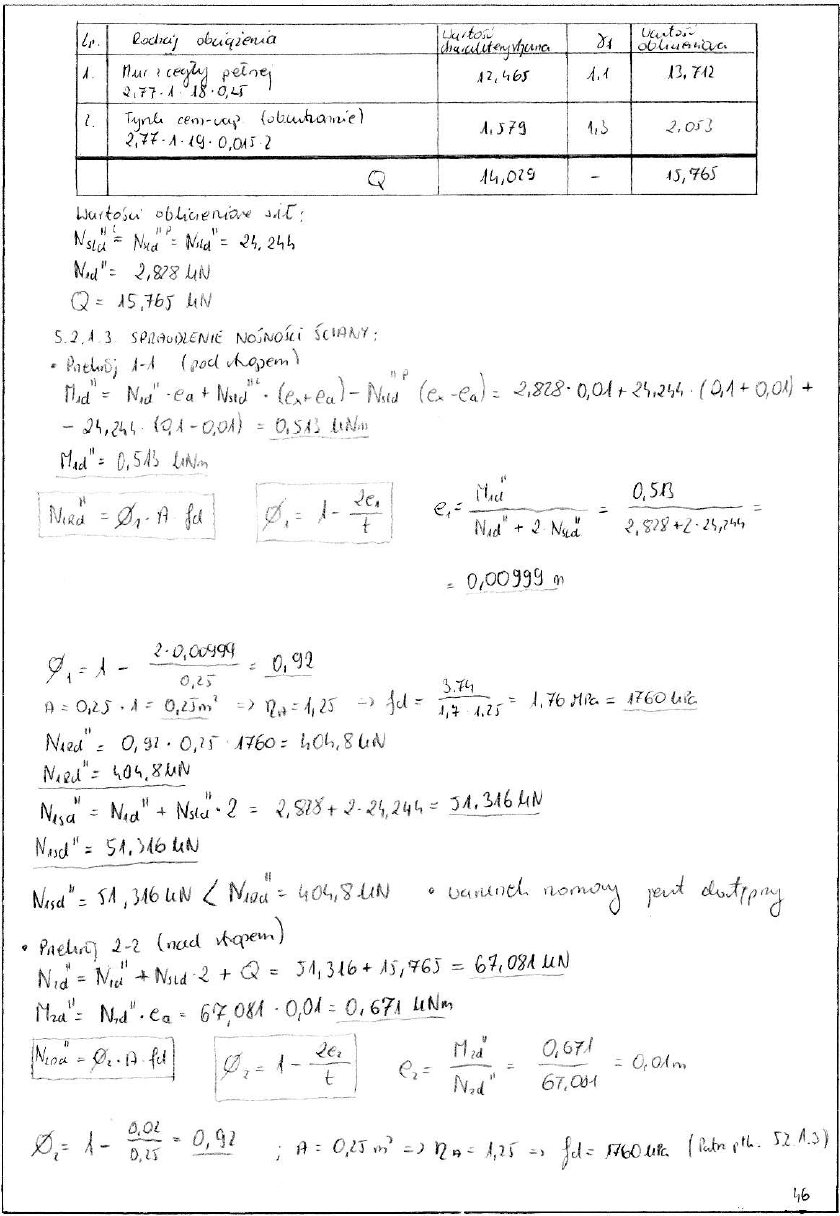 Lp. Rodzaj obciążenia Wartość charakterystyczna γ1 Wartość obliczeniowa
1. Mur z cegły pełnej 12,465 1,1 13,712
2,77·1·18·0,25
2. Tynk cem-wap (obustronnie) 1,579 1,3 2,053
2,77·1·19·0,015·2
Q 14,029 – 15,765
Wartości obliczeniowe sił:
Nsld"L = Nsld"P = Nsld" = 24,244
N1d" = 2,828 kN
Q = 15,765 kN
5.2.1.3. SPRAWDZENIE NOŚNOŚCI ŚCIANY:
• Przekrój 1-1 (pod stropem)
M1d" = N1d" · ea + Nsld"L · (ex+ea) – Nsld"P (ex-ea) = 2,828·0,01 + 24,244·(0,1+0,01) +
– 24,244·(0,1-0,01) = 0,513 kNm
M1d" = 0,513 kNm
N1Rd" = Ø1·A·fd Ø1 = 1 – 2e1/t e1 = M1d"/(N1d" + 2·Nsld") = 0,513/(2,828+2·24,244) =
= 0,00999 m
Ø1 = 1 – 2·0,00999/0,25 = 0,92
A = 0,25·1 = 0,25m² => ηA = 1,25 => fd = 3.74/(1,7·1.25) = 1,76 MPa = 1760 kPa
N1Rd" = 0,92·0,25·1760 = 404,8 kN
N1Rd" = 404,8 kN
N1Sd" = N1d" + Nsld"·2 = 2,828 + 2·24,244 = 51.316 kN
N1Sd" = 51.316 kN
N1Sd" = 51,316 kN < N1Rd" = 404,8 kN • warunek normowy jest dostępny
• Przekrój 2-2 (nad stropem)
N2d" = N1d" + Nsld·2 + Q = 51,316 + 15,765 = 67,081 kN
M2d" = N2d"·ea = 67,081·0,01 = 0,671 kNm
N2Rd" = Ø2·A·fd Ø2 = 1 – 2e2/t e2 = M2d"/N2d" = 0,671/67,081 = 0,01m
Ø2 = 1 – 0,02/0,25 = 0,92 ; A = 0,25 m² => ηA = 1,25 => fd = 1760 kPa (Patrz pkt. 5.2.1.3)
46